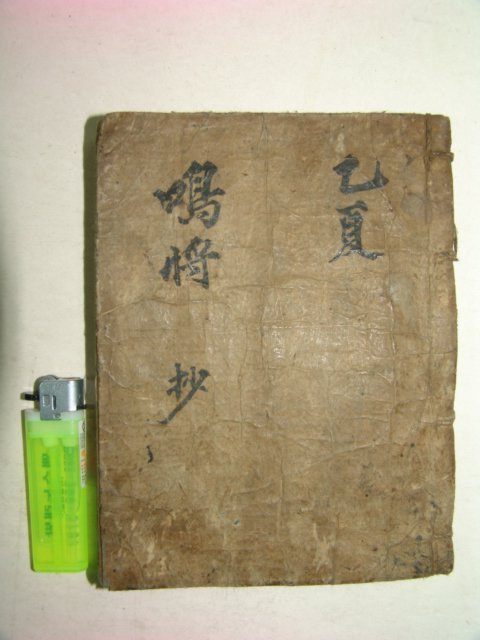 乙夏
鳴將 抄